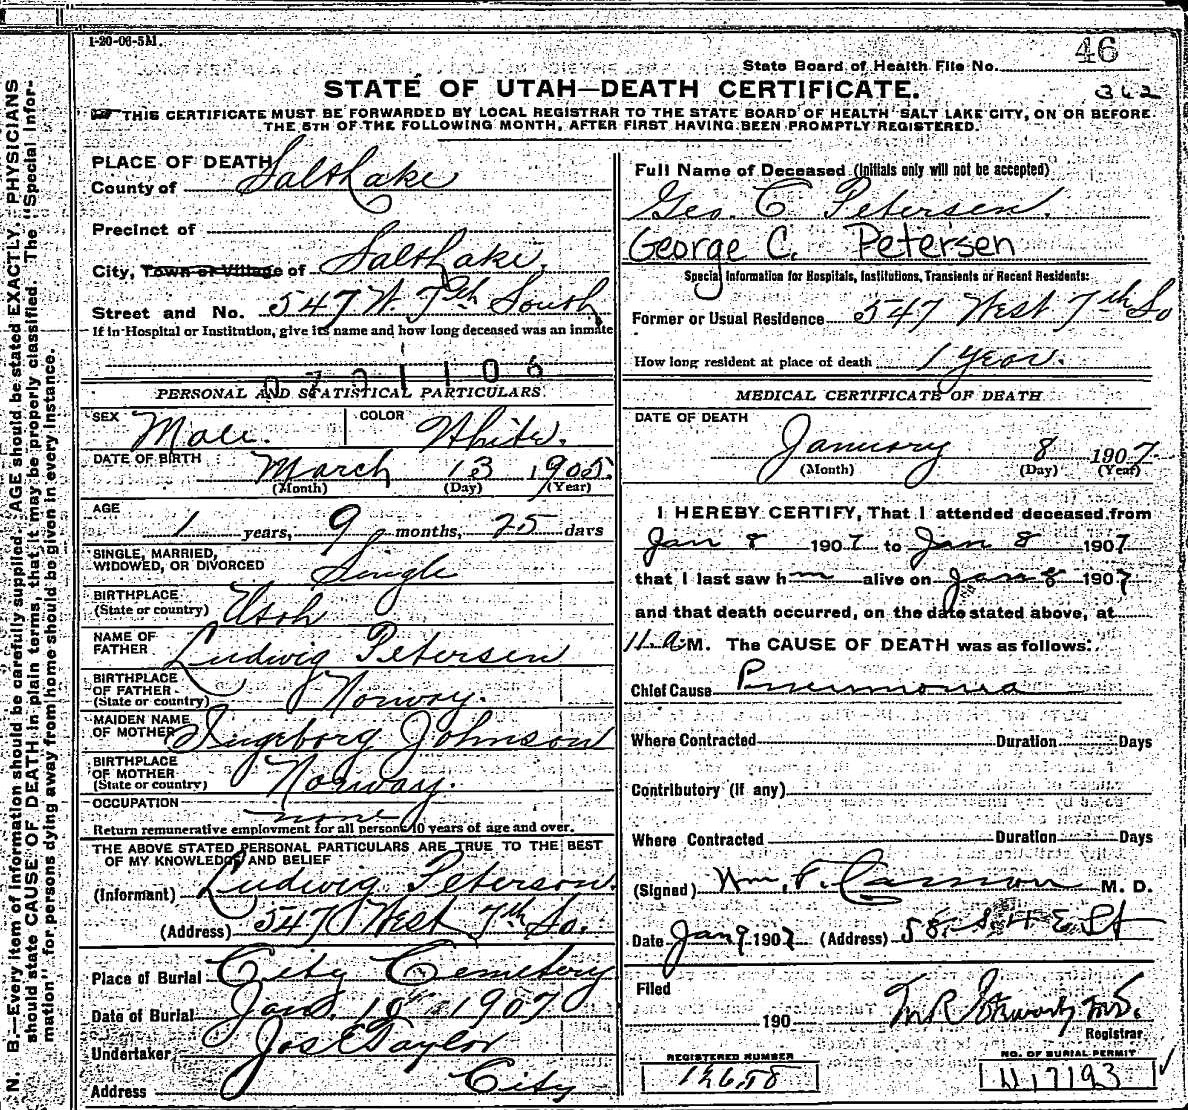 1-20-06-5M.
46
State Board of Health File No.
362
STATE OF UTAH—DEATH CERTIFICATE.
THIS CERTIFICATE MUST BE FORWARDED BY LOCAL REGISTRAR TO THE STATE BOARD OF HEALTH SALT LAKE CITY, ON OR BEFORE
THE 5TH OF THE FOLLOWING MONTH, AFTER FIRST HAVING BEEN PROMPTLY REGISTERED.
N. B.—Every item of information should be carefully supplied. AGE should be stated EXACTLY. PHYSICIANS
should state CAUSE OF DEATH in plain terms, that it may be properly classified. The "Special Infor-
mation" for persons dying away from home should be given in every instance.
PLACE OF DEATH
County of Salt Lake
Precinct of
City, Town or Village of Salt Lake.
Street and No. 547 W. 7th South
If in Hospital or Institution, give its name and how long deceased was an inmate
PERSONAL AND STATISTICAL PARTICULARS
SEX Male. COLOR White.
DATE OF BIRTH March 13 1905.
(Month) (Day) (Year)
AGE
1 years, 9 months, 25 days
SINGLE, MARRIED,
WIDOWED, OR DIVORCED Single
BIRTHPLACE
(State or country) Utah
NAME OF
FATHER Ludwig Petersen
BIRTHPLACE
OF FATHER
(State or country) Norway.
MAIDEN NAME
OF MOTHER Ingeborg Johnson
BIRTHPLACE
OF MOTHER
(State or country) Norway.
OCCUPATION none
Return remunerative employment for all persons 10 years of age and over.
THE ABOVE STATED PERSONAL PARTICULARS ARE TRUE TO THE BEST
OF MY KNOWLEDGE AND BELIEF
(Informant) Ludwig Peterson.
(Address) 547 West 7th So.
Place of Burial City Cemetery
Date of Burial Jan. 10th 1907
Undertaker Jos E Taylor
Address City
Full Name of Deceased (Initials only will not be accepted)
Geo. C Petersen.
George C. Petersen
Special Information for Hospitals, Institutions, Transients or Recent Residents:
Former or Usual Residence 547 West 7th So
How long resident at place of death 1 Year.
MEDICAL CERTIFICATE OF DEATH
DATE OF DEATH
January 8 1907.
(Month) (Day) (Year)
I HEREBY CERTIFY, That I attended deceased from
Jan 8 1907 to Jan 8 1907
that I last saw h m alive on Jan 8 1907
and that death occurred, on the date stated above, at
11 a M. The CAUSE OF DEATH was as follows:
Chief Cause Pneumonia
Where Contracted Duration Days
Contributory (if any)
Where Contracted Duration Days
(Signed) Wm. F. Cannon M. D.
Date Jan 9 1907 (Address)
Filed
190
Registrar
REGISTERED NUMBER
NO. OF BURIAL PERMIT